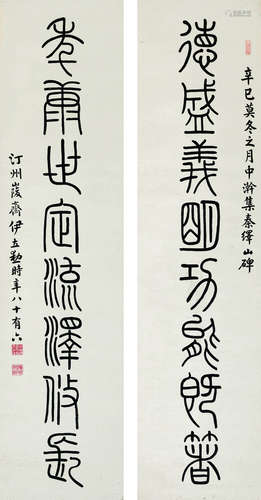 辛巳莫冬之月中澣集秦繹山碑
德盛義明功能既著
年康世定流澤攸長
汀州峻齋伊立勳時年八十有六